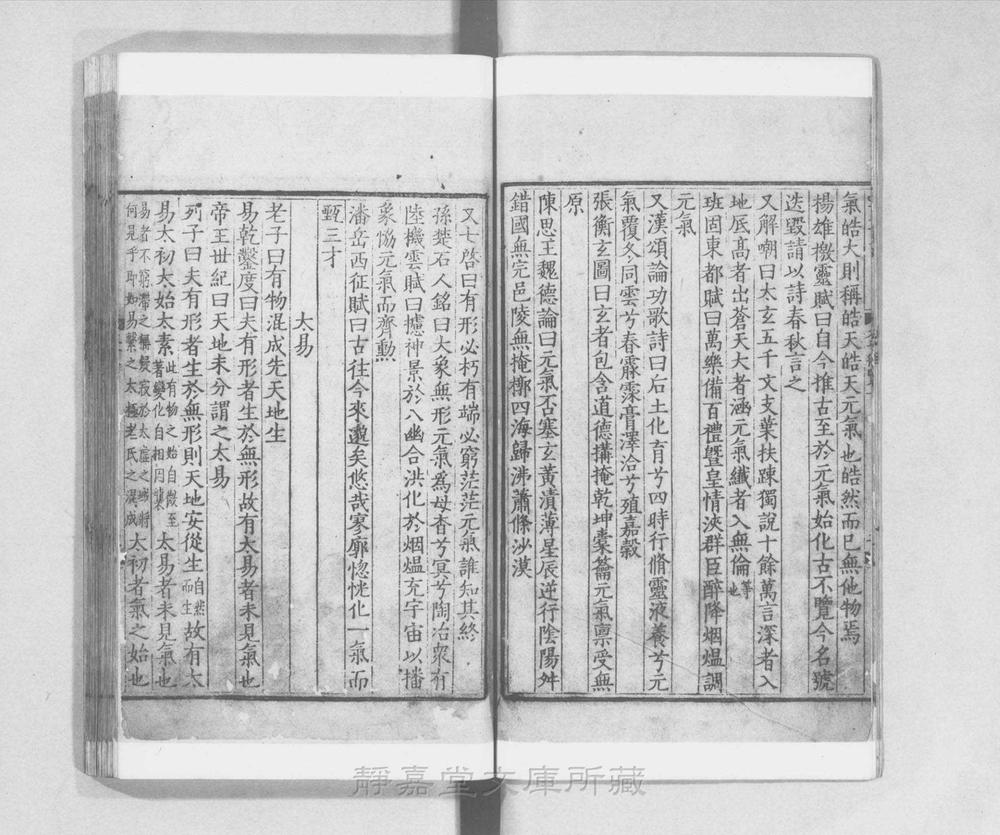 氣皓大則稱皓天皓天元氣也皓然而已無他物焉
揚雄檄靈賦曰自今推古至於元氣始化古不覽今名號
迭毀請以詩春秋言之
又解嘲曰太玄五千文支葉扶踈獨說十餘萬言深者入
地底高者出蒼天大者涵元氣纖者入無倫等也
班固東都賦曰萬樂備百禮曁皇情浹群臣醉降烟煴調
元氣
又漢頌論功歌詩曰后土化育兮四時行脩靈液養兮元
氣覆冬同雲兮春霡霂膏澤洽兮殖嘉穀
張衡玄圖曰玄者包含道德搆掩乾坤橐籥元氣禀受無
原
陳思王魏德論曰元氣否塞玄黃濆薄星辰逆行陰陽舛
錯國無完邑陵無掩槨四海歸沸蕭條沙漠
又七啓曰有形必朽有端必窮茫茫元氣誰知其終
孫楚石人銘曰大象無形元氣爲母杳兮冥兮陶冶衆有
陸機雲賦曰攄神景於八幽合洪化於烟煴充宇宙以播
象恊元氣而齊勳
潘岳西征賦曰古往今來邈矣悠哉寥廓惚恍化一氣而
甄三才
太易
老子曰有物混成先天地生
易乾鑿度曰夫有形者生於無形故有太易者未見氣也
帝王世紀曰天地未分謂之太易
列子曰夫有形者生於無形則天地安從生自然而生故有太
易太初太始太素此有物之始自微至著變化自相因襲太易者未見氣也
易者不窮滯之稱凝寂於太虛之域將何見乎即如易繫之太極老氏之渾成太初者氣之始也
靜嘉堂文庫所藏